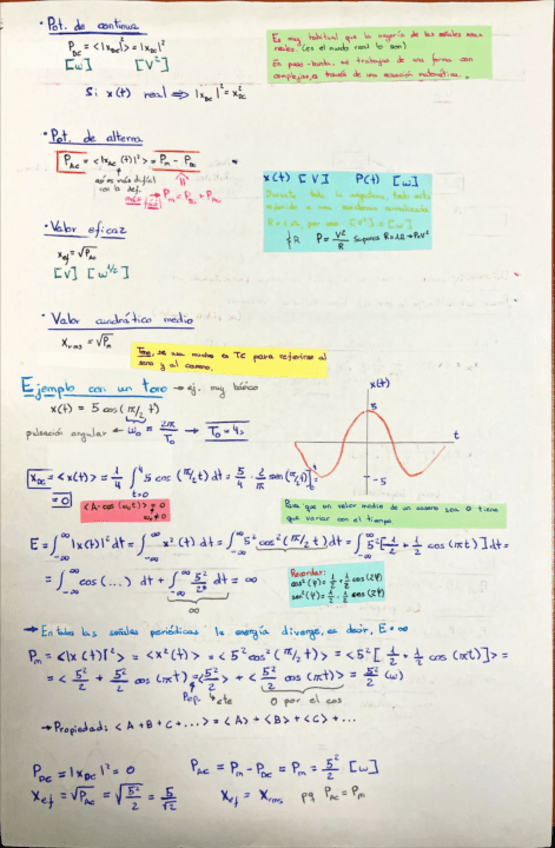 · Pot. de continua
P_DC = <|x_DC|²> = |x_DC|²
[W] [V²]
Si x(t) real ⇒ |x_DC|² = x²_DC
Es muy habitual que la mayoría de las señales sean
reales. (en el mundo real lo son)
En paso-banda, se trabajan de una forma con
complejas, a través de una ecuación matemática.
· Pot. de alterna
P_AC = <|x_AC(t)|²> = P_m - P_DC
así es más difícil
con la def.
P_m = P_DC + P_AC
x(t) [V] P(t) [W]
Durante toda la asignatura, todo está
referido a una resistencia normalizada
R = 1 Ω, por eso [V²] = [W]
R P = V²/R Supones R=1Ω → P=V²
· Valor eficaz
x_ef = √P_AC
[V] [W^1/2]
· Valor cuadrático medio
X_rms = √P_m
Tono, se usa mucho en TC para referirse al
seno y al coseno.
Ejemplo con un tono → ej. muy básico
x(t) = 5 cos(π/2 t)
pulsación angular ← ω_0 = 2π/T_0 → T_0 = 4s
x(t)
5
t
-5
x_DC = <x(t)> = 1/4 ∫_{t=0}^{4} 5 cos(π/2 t) dt = 5/4 · 2/π sen(π/2 t)] =
= 0
<A·cos(ω_0t)> = 0
ω_0 ≠ 0
Para que un valor medio de un coseno sea 0 tiene
que variar con el tiempo.
E = ∫_{-∞}^{∞} |x(t)|² dt = ∫_{-∞}^{∞} x²(t) dt = ∫_{-∞}^{∞} 5² cos²(π/2 t) dt = ∫_{-∞}^{∞} 5² [1/2 + 1/2 cos(πt)] dt =
= ∫_{-∞}^{∞} cos(...) dt + ∫_{-∞}^{∞} 5²/2 dt = ∞
∞
Recordar:
cos²(φ) = 1/2 + 1/2 cos(2φ)
sen²(φ) = 1/2 - 1/2 cos(2φ)
→ En todas las señales periódicas la energía diverge, es decir, E = ∞
P_m = <|x(t)|²> = <x²(t)> = <5² cos²(π/2 t)> = <5² [1/2 + 1/2 cos(πt)]> =
= <5²/2 + 5²/2 cos(πt)> = <5²/2> + <5²/2 cos(πt)> = 5²/2 (W)
Prop. cte 0 por el cos
→ Propiedad: <A+B+C+...> = <A> + <B> + <C> + ...
P_DC = |x_DC|² = 0 P_AC = P_m - P_DC = P_m = 5²/2 [W]
x_ef = √P_AC = √(5²/2) = 5/√2 x_ef = x_rms pq P_AC = P_m